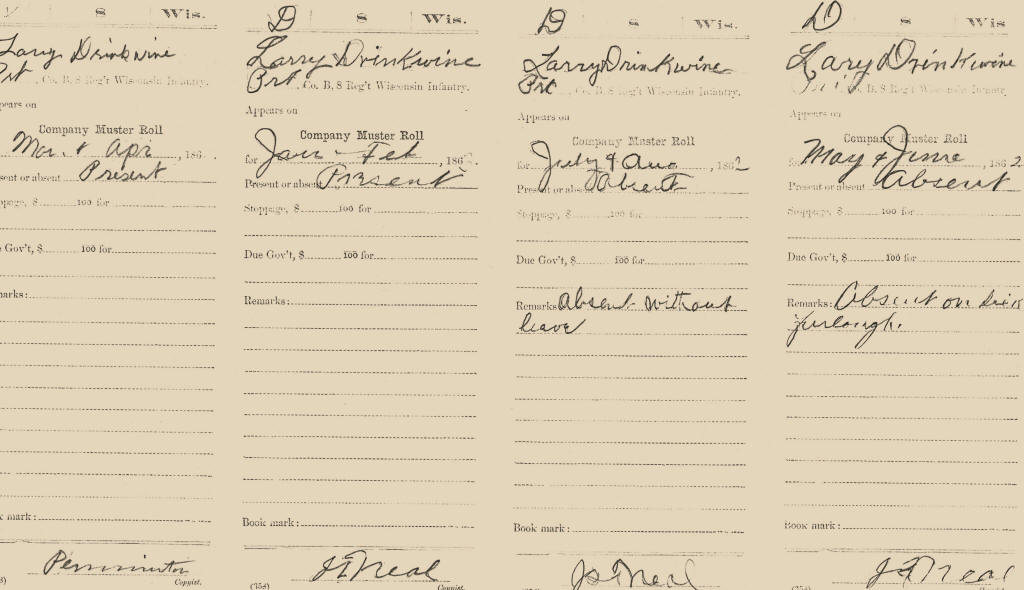 8 Wis.
Larry Drinkwine
Prt. Co. B, 8 Reg't Wisconsin Infantry.
Appears on
Company Muster Roll
Mar. & Apr , 186 .
sent or absent Present
page, $ 100 for
Gov't, $ 100 for
marks:
mark:
Copyist.
D 8 Wis.
Larry Drinkwine
Prt. Co. B, 8 Reg't Wisconsin Infantry.
Appears on
Company Muster Roll
for Jan - Feb , 186 .
Present or absent Present
Stoppage, $ 100 for
Due Gov't, $ 100 for
Remarks:
Book mark:
J S Neal
(358) Copyist.
D 8 Wis.
Larry Drinkwine
Prt Co. B, 8 Reg't Wisconsin Infantry.
Appears on
Company Muster Roll
for July & Aug , 1862
Present or absent Absent
Stoppage, $ 100 for
Due Gov't, $ 100 for
Remarks: Absent without
leave
Book mark:
J S Neal
D 8 Wis
Lary Drinkwine
Co. B, 8 Reg't Wisconsin Infantry,
Appears on
Company Muster Roll
for May & June , 1862.
Present or absent Absent
Stoppage, $ 100 for
Due Gov't, $ 100 for
Remarks: Absent on sick
furlough.
Book mark:
J S Neal
(358)